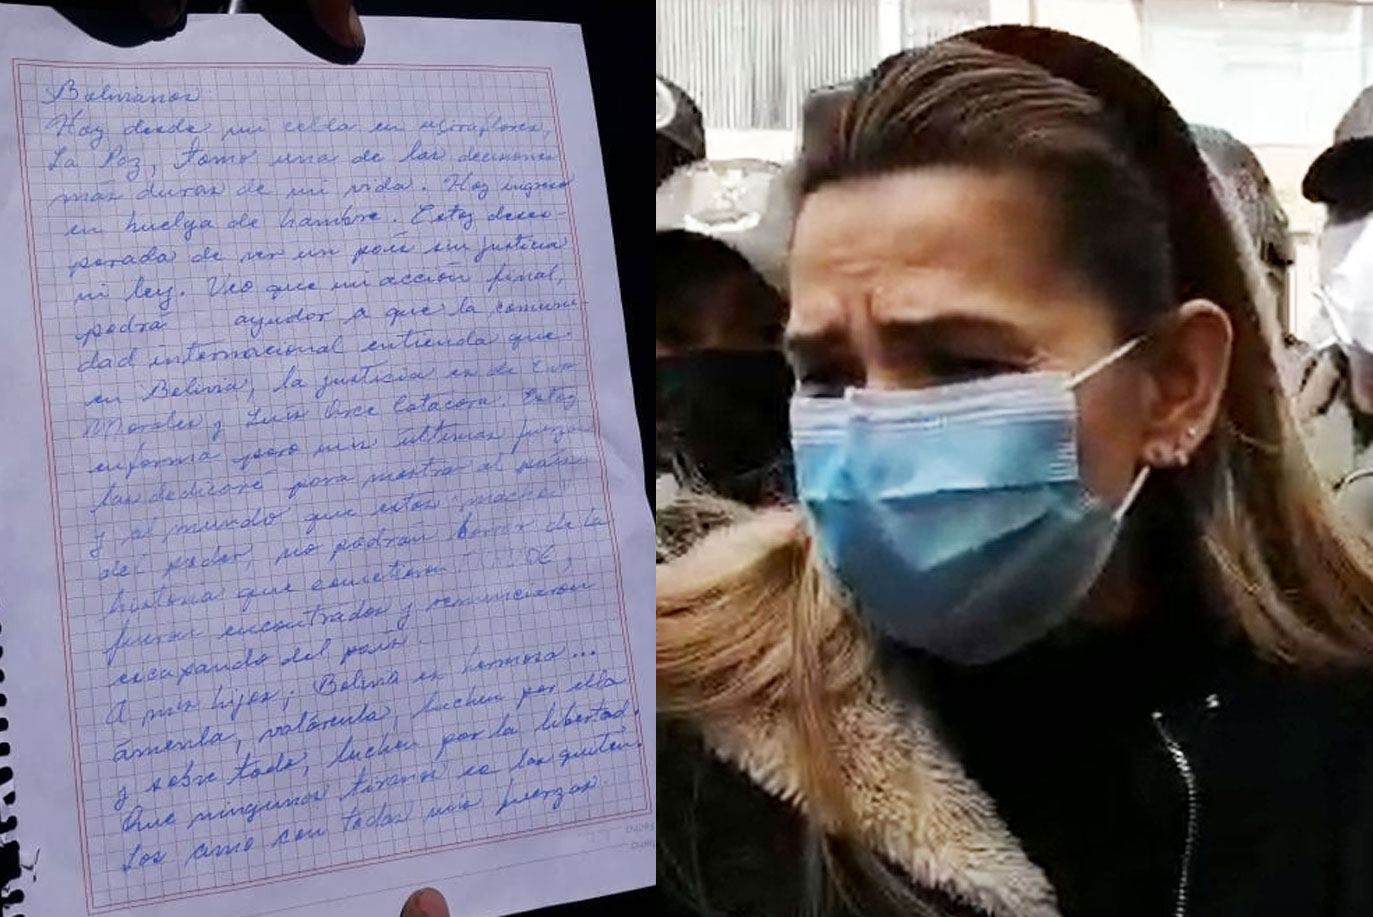 Bolivianos:
Hoy desde mi celda en Miraflores,
La Paz, tomo una de las decisiones
mas duras de mi vida. Hoy ingreso
en huelga de hambre. Estoy deses-
perada de ver un país sin justicia
ni ley. Veo que mi acción final,
podrá ayudar a que la comuni-
dad internacional entienda que
en Bolivia, la justicia es de Evo
Morales y Luis Arce Catacora. Estoy
enferma pero mis últimas fuerzas
las dedicaré para mostrar al país
y al mundo que estos "machos"
del poder, no podrán borrar de la
historia que cometieron
fueron encontrados y renunciaron
escapando del país.
A mis hijos; Bolivia es hermosa...
ámenla, valórenla, luchen por ella
y sobre todo, luchen por la libertad.
Que ningunos tiranos se las quiten.
Los amo con todas mis fuerzas.